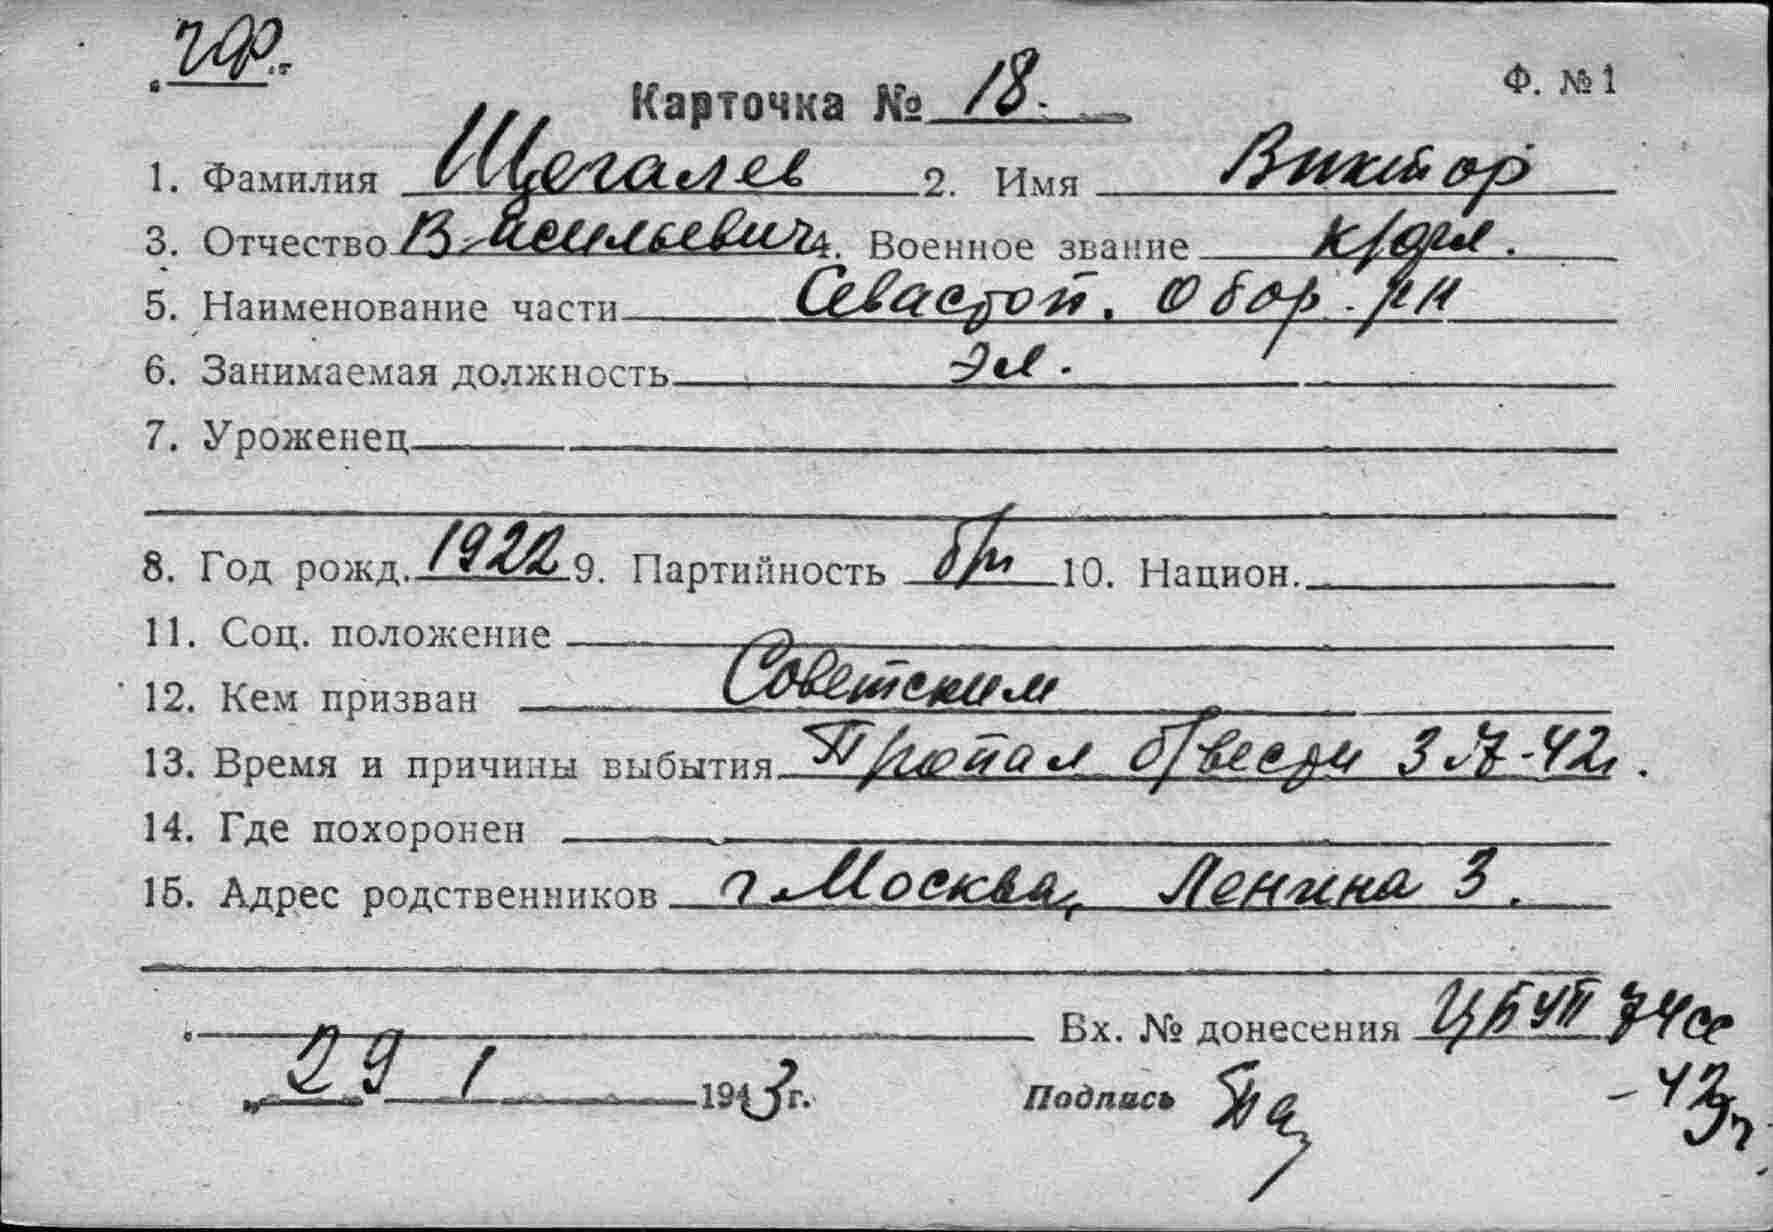 ЧФ.
Ф. № 1
Карточка № 18.
1. Фамилия Щегалев 2. Имя Виктор
3. Отчество Васильевич 4. Военное звание к/фл.
5. Наименование части Севастоп. Обор. р-н
6. Занимаемая должность эл.
7. Уроженец
8. Год рожд. 1922 9. Партийность б/п 10. Национ.
11. Соц. положение
12. Кем призван Советским
13. Время и причины выбытия Пропал б/вести 3.7-42г.
14. Где похоронен
15. Адрес родственников г. Москва, Ленина 3.
Вх. № донесения ЦБУП 74сс
-42г.
„29 1 1943г.
Подпись